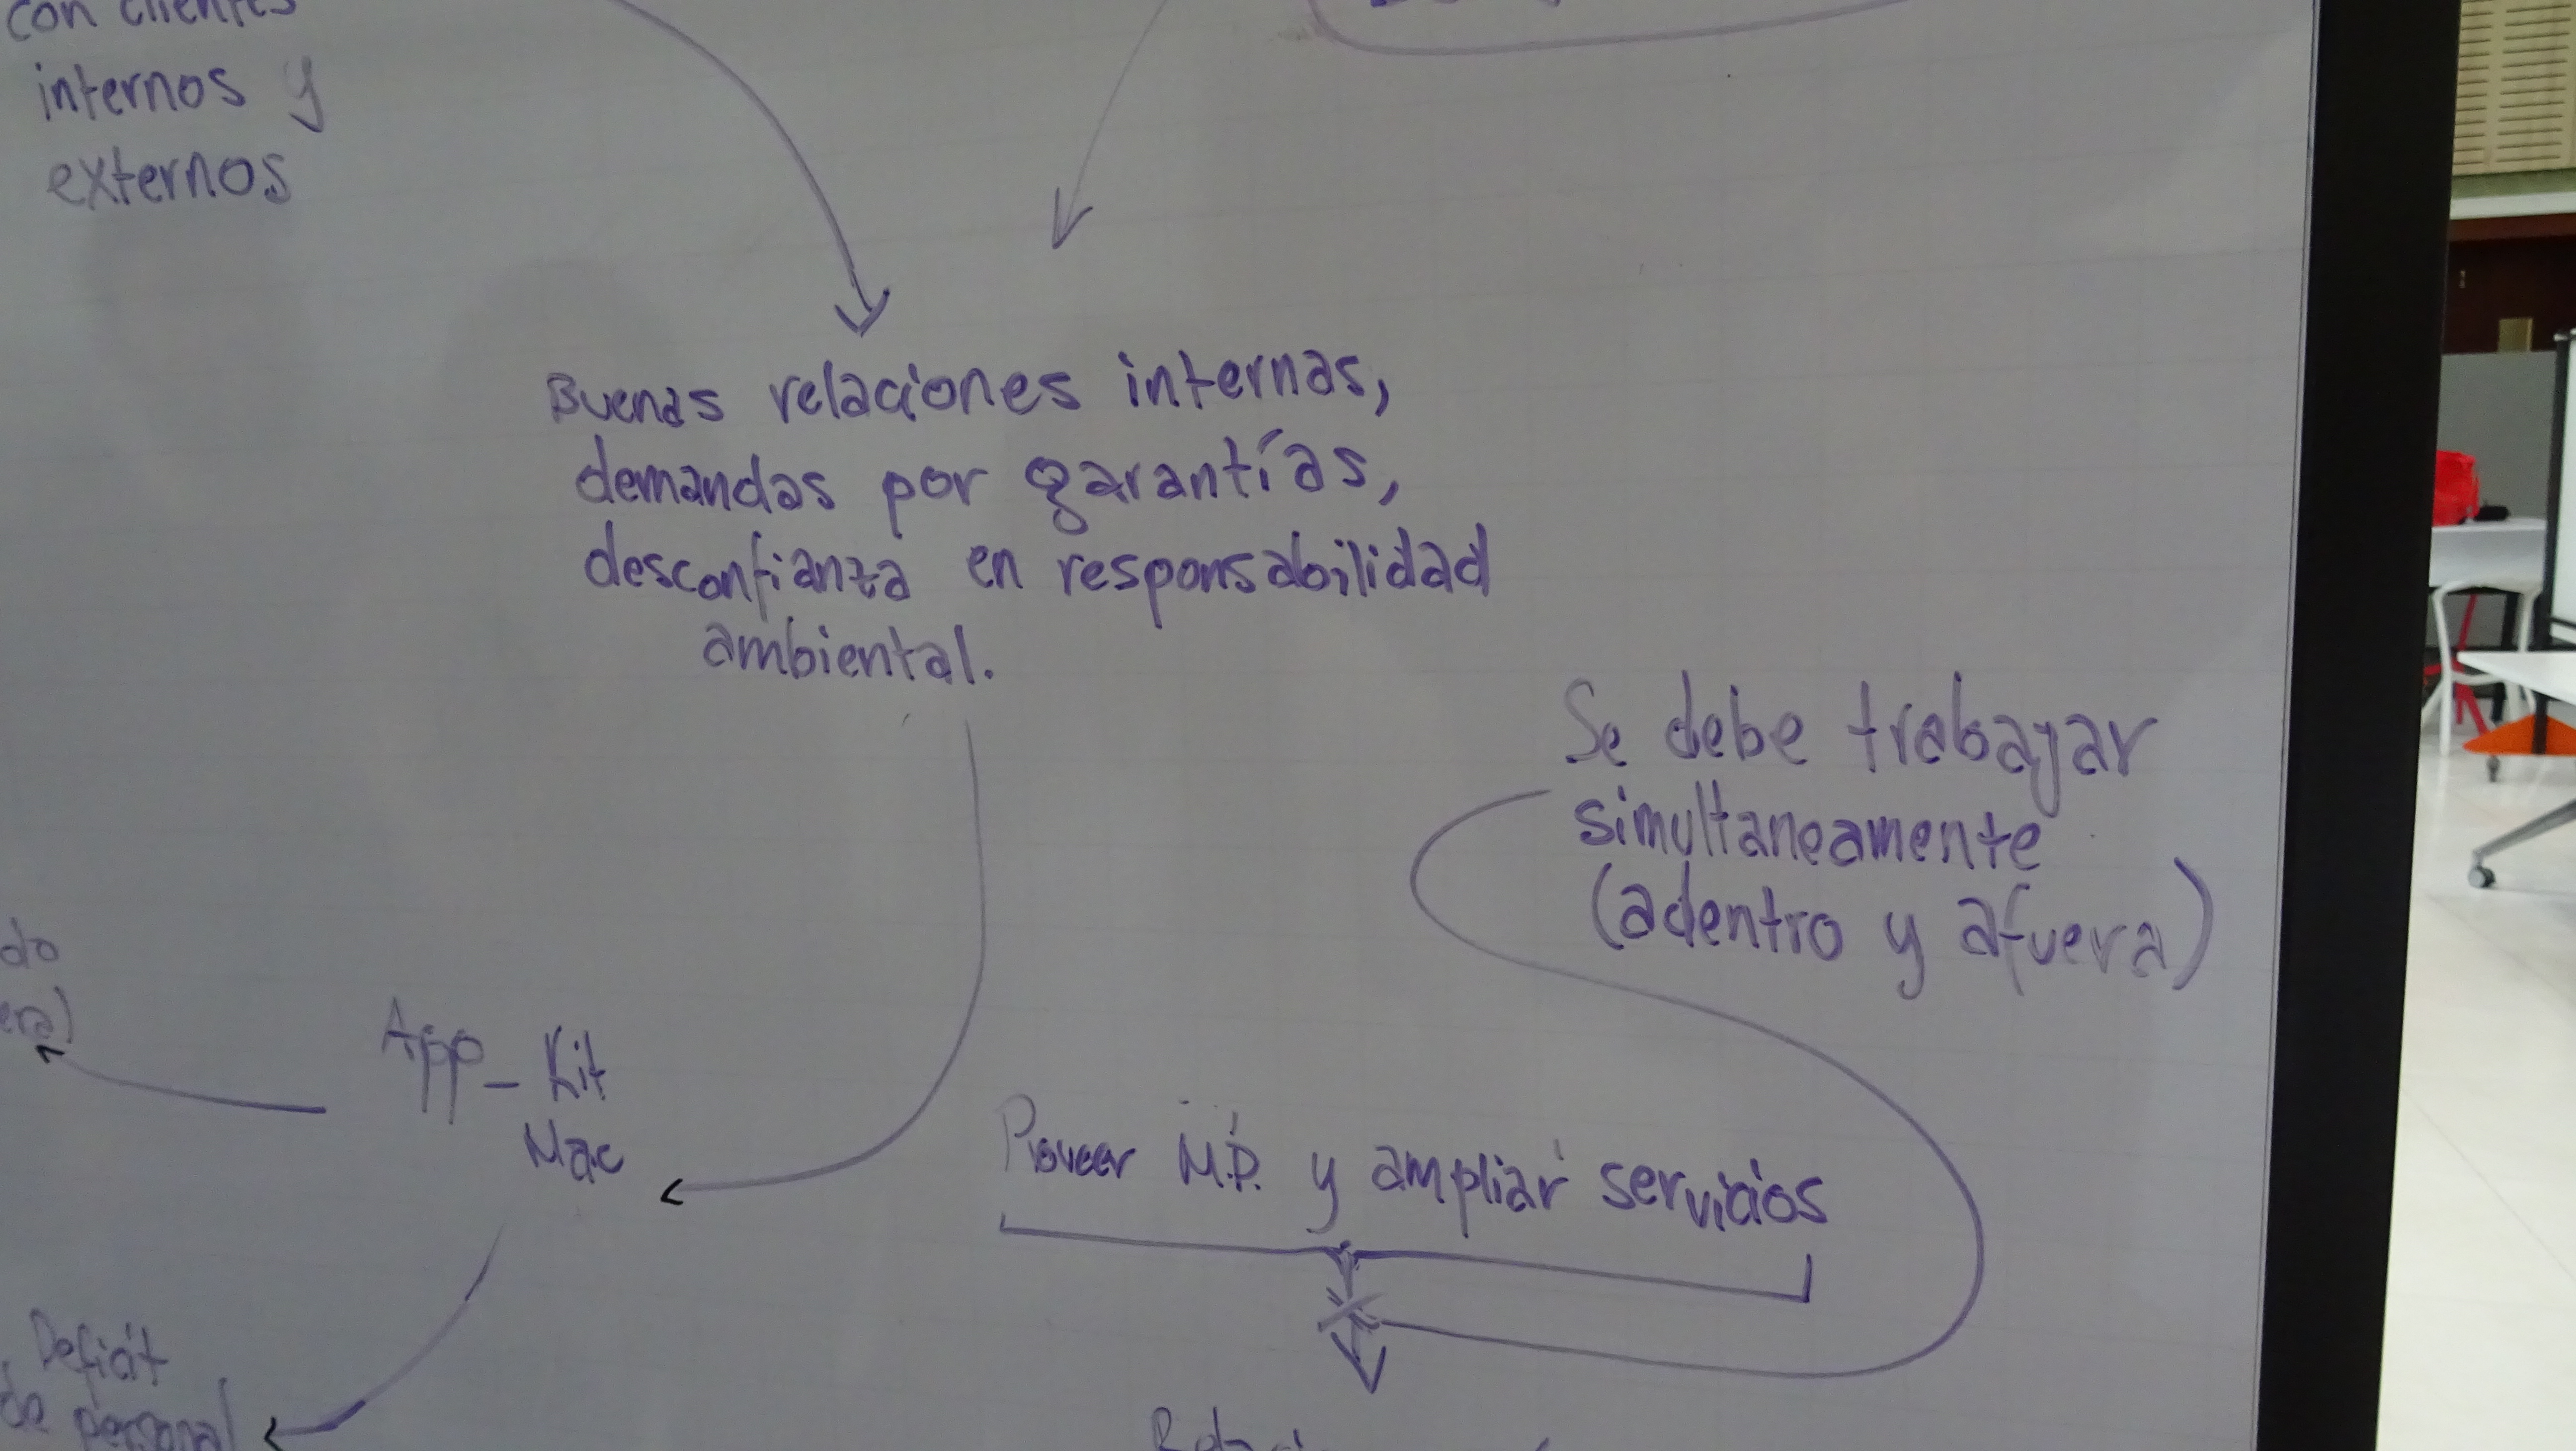 con clientes
internos y
externos
Buenas relaciones internas,
demandas por garantías,
desconfianza en responsabilidad
ambiental.
Se debe trabajar
simultaneamente
(adentro y afuera)
App - Kit
Mac
Proveer M.P. y ampliar servicios
Deficit
de personal